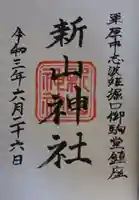 栗原市志波姫堀口御駒堂鎮座
新山神社
令和三年六月二十六日